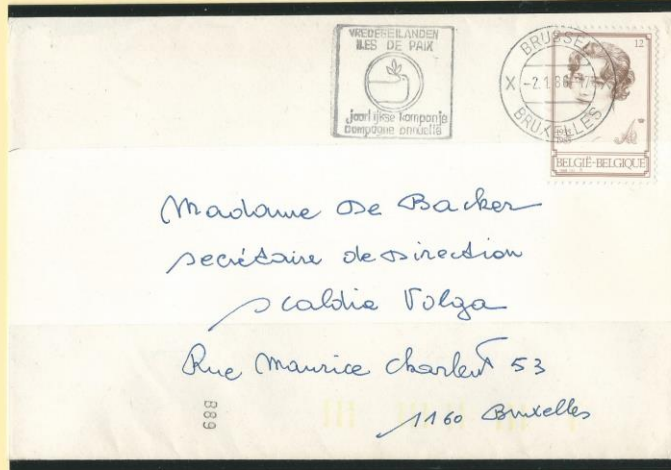 VREDESEILANDEN
ILES DE PAIX
jaarlijkse kampanje
campagne annuelle
BRUSSEL
X -2.1.86 X
BRUXELLES
12
BELGIË-BELGIQUE
Madame De Backer
secrétaire de Direction
Scaldia Volga
Rue Maurice Charlent 53
1160 Bruxelles
889